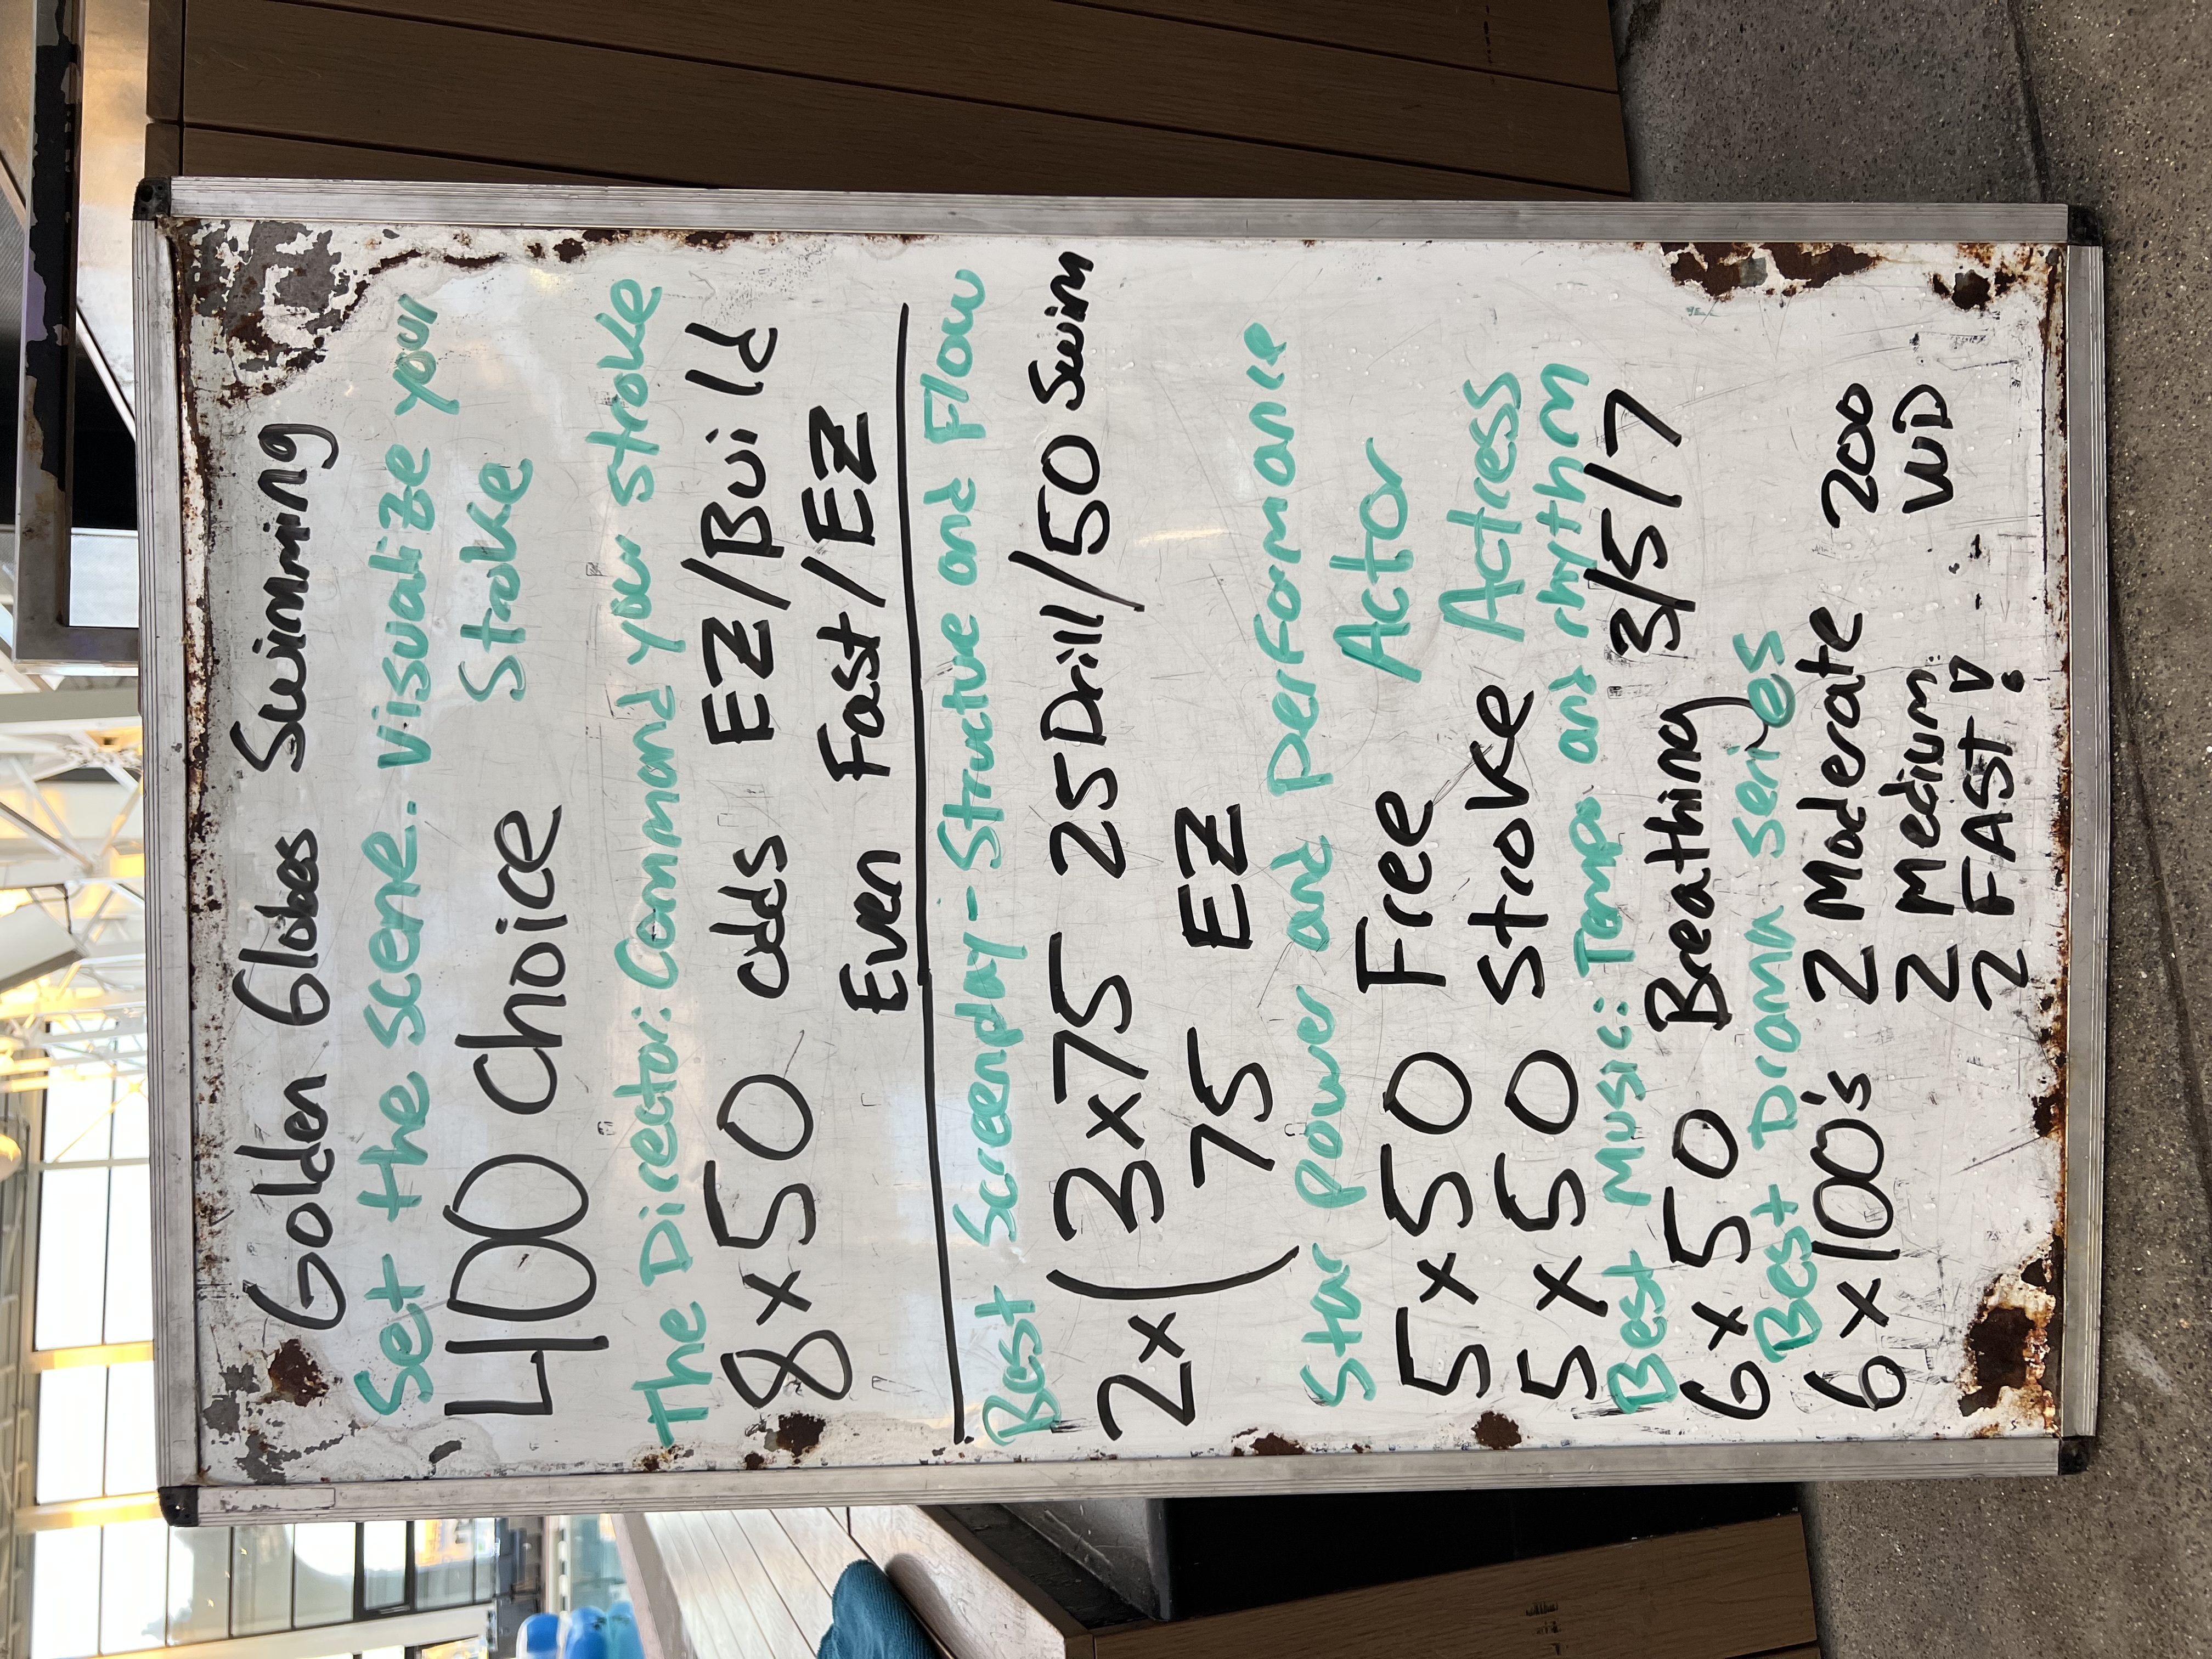 Golden Globes Swimming
Set the scene. Visualize your
400 Choice Stroke
The Director: Command your stroke
8x50 odds EZ/Build
Even Fast/EZ
Best Screenplay - Structure and Flow
2x(3x75 25 Drill/50 Swim
75 EZ
Star power and performance
5x50 Free Actor
5x50 Stroke Actress
Best Music: Tempo and rhythm
6x50 Breathing 3/5/7
Best Drama series
6x100's 2 Moderate 200
2 Medium WD
2 FAST!